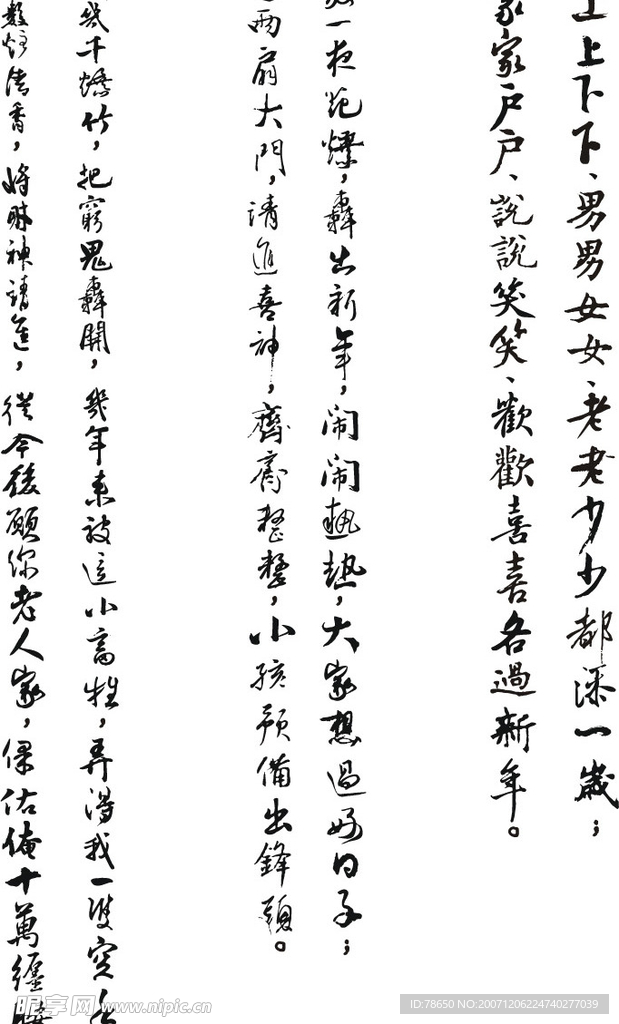 上上下下、男男女女、老老少少都添一歲；
家家戶戶、說說笑笑、歡歡喜喜各過新年。
一夜炮燎，轟出新年，闹闹熱熱，大家想過好日子；
两扇大門，請進喜神，齊齊整整，小孩預備出鋒頭。
幾千爆竹，把窮鬼轟開，幾年來被這小畜牲，弄得我一雙空
數炷清香，將財神請進，從今後願你老人家，保佑俺十萬纏腰
昵享网 www.nipic.cn
ID:78650 NO:20071206224740277039